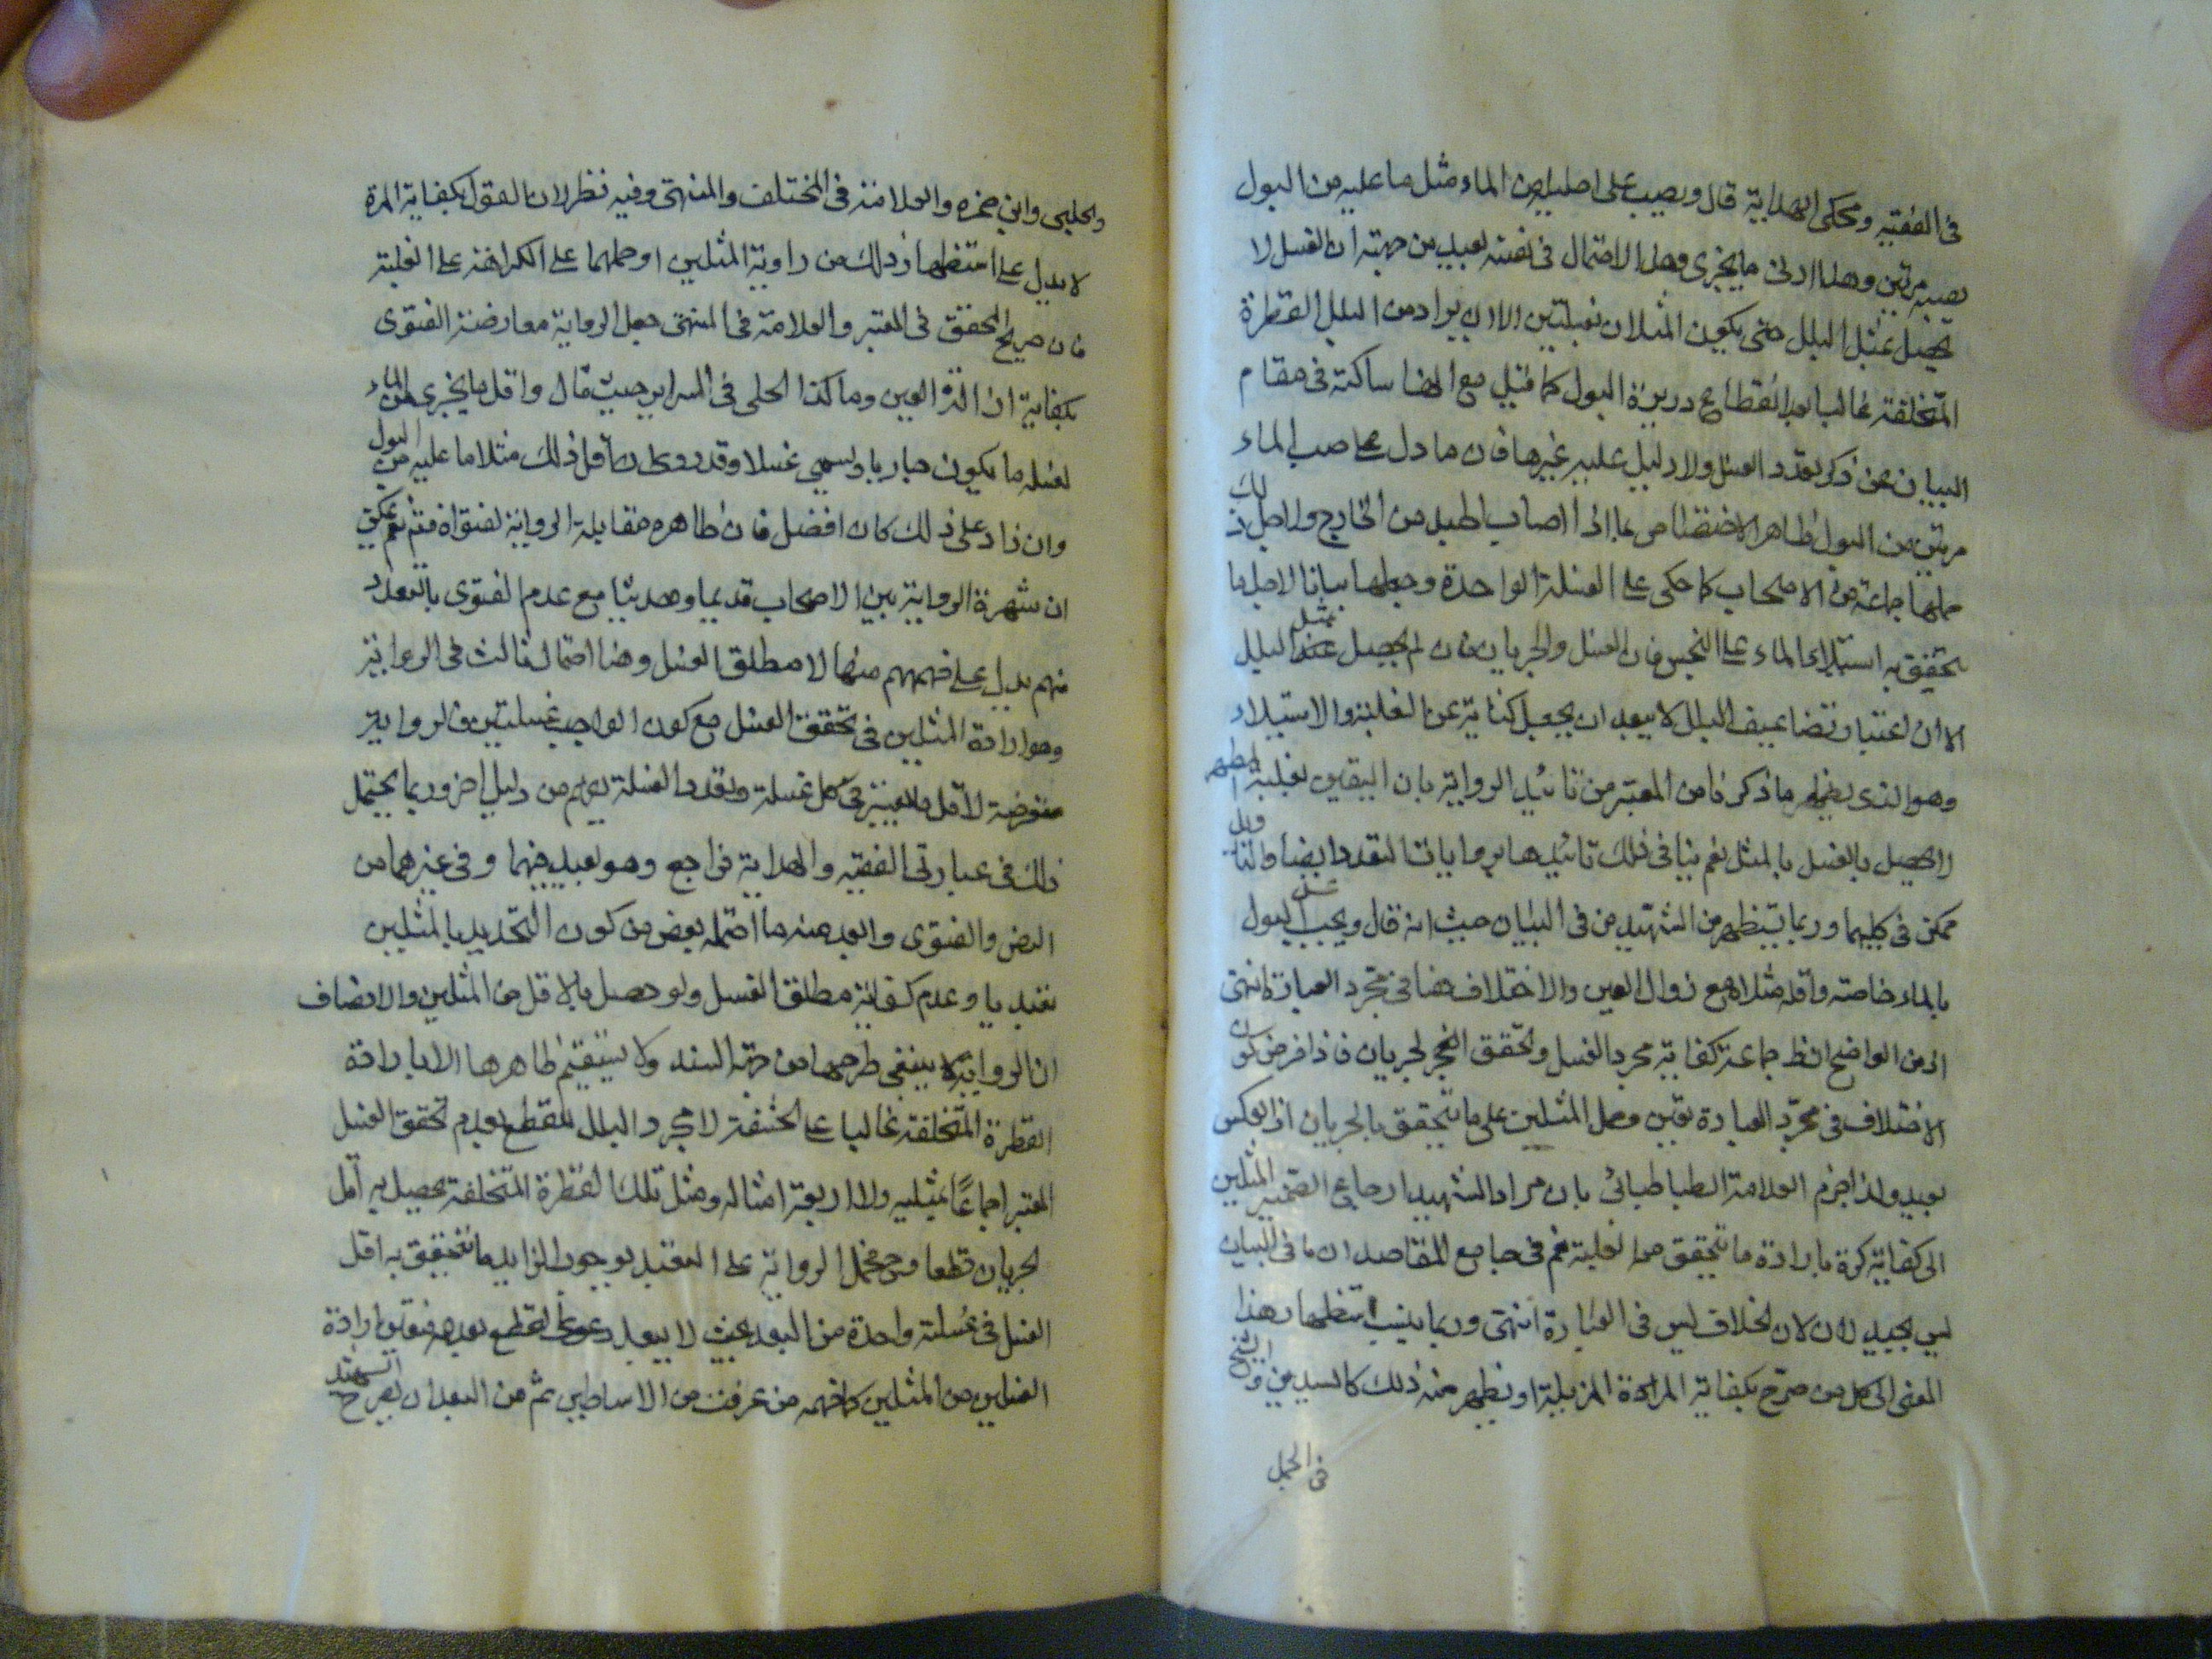 فى الفقيه ومحكى الهداية قال ويصب على احليله من الماء مثل ما عليه من البول
يصبه مرتين وهذا ادنى ما يجزى وهذا الاحتمال فى نفسه بعيد من جهة ان الغسل لا
يحصل بمثل البلل حتى يكون المثلان غسلتين الا ان يراد من البلل القطرة
المتخلفة غالبا بعد انقطاع دريرة البول كما قيل مع انها ساكتة فى مقام
البيان عن ذكر تعدد الغسل ولا دليل عليه غيرها فان ما دل على صب الماء
مرتين من البول ظاهر الاختصاص بما اذا اصاب الجسد من الخارج ولاجل ذلك
حملها جماعة من الاصحاب كما حكى على الغسلة الواحدة وجعلها بيانا لاقل ما
يتحقق به استيلاء الماء على النجس فان الغسل والجريان وان لم يحصل بمثل البلل
الا ان اعتبار تضاعيف البلل لا يبعد ان يجعل كناية عن الغلبة والاستيلاء
وهو الذى يظهر ما ذكرنا من المعتبر من تائيد الرواية بان اليقين بغلبة المطهر
لا يحصل بالغسل بالمثل نعم ينافى ذلك تائيدها بروايات التعدد ايضا والتاويل
ممكن فى كليهما وربما يستظهر من الشهيد فى البيان حيث انه قال ويجب غسل البول
بالماء خاصة واقله مثلاه مع زوال العين والاختلاف هنا فى مجرد العبارة انتهى
اذ من الواضح ان جماعة كفاية مجرد الغسل وتحقق الجريان فاذا فرض كون
الاختلاف فى مجرد العبارة تعين حمل المثلين على ما يتحقق بالجريان اذ العكس
بعيد ولذا جزم العلامة الطباطبائى بان مراد الشهيد ارجاع المثلين
الى كفاية المرة بارادة ما يتحقق معه الغلبة نعم فى جامع المقاصد ان ما فى البيان
ليس بجيد لان الخلاف ليس فى العبارة انتهى وربما ينسب استظهار هذا
المعنى الى كل من صرح بكفاية المرة المزيلة او يظهر منه ذلك كالسيدين والشيخ
فى الجمل
والحلبى وابن حمزه والعلامة فى المختلف والمنتهى وفيه نظر لان القول بكفاية المرة
لا يدل على استظهار ذلك من رواية المثلين او حملهما على الغلبة
فان صريح المحقق فى المعتبر والعلامة فى المنتهى جعل الرواية معارضة الفتوى
بكفاية العين وكذا الحلى فى السرائر حيث قال واقل ما يجزى من الماء
لغسله ما يكون جاريا ويسمى غسلا وقد روى ان اقل ذلك مثلا ما عليه من البول
وان زاد على ذلك كان افضل فان ظاهره مقابلة الرواية لفتواه نعم يمكن
ان شهرة الرواية بين الاصحاب قديما وحديثا مع عدم الفتوى بالتعدد
منهم يدل على فهمهم منها لا مطلق الغسل وهنا احتمال ثالث فى الرواية
وهو ارادة المثلين فى تحقق الغسل مع كون الواجب غسلتين فالرواية
متعرضة لاقل ما يعتبر فى كل غسلة وتعدد الغسلة يفهم من دليل اخر وربما يحتمل
ذلك فى عبارتى الفقيه والهداية فراجع وهو بعيد فيهما وفى غيرهما من
النص والفتوى وابعد منه ما احتمله بعض من كون التحديد بالمثلين
تعبديا وعدم كفاية مطلق الغسل ولو حصل بالاقل من المثلين والانصاف
ان الرواية لا ينبغى طرحها من جهة السند ولا يستقيم ظاهرها الا بارادة
القطرة المتخلفة غالبا على الحشفة لا مجرد البلل للقطع بعدم تحقق الغسل
المعتبر اجماعًا بمثليه ولا اربعة امثاله ومثل تلك القطرة المتخلفة يحصل به اقل
الجريان قطعا وحمل الرواية على التعبد بوجوب الزايد ما يتحقق به اقل
الغسل فى غسلة واحدة من البعد بحيث لا يبعد دعوى القطع بعدمه فتعين ارادة
الغسلين من المثلين كما فهمه من عرفت من الاساطين ثم من البعد ان يصرح الشهيد